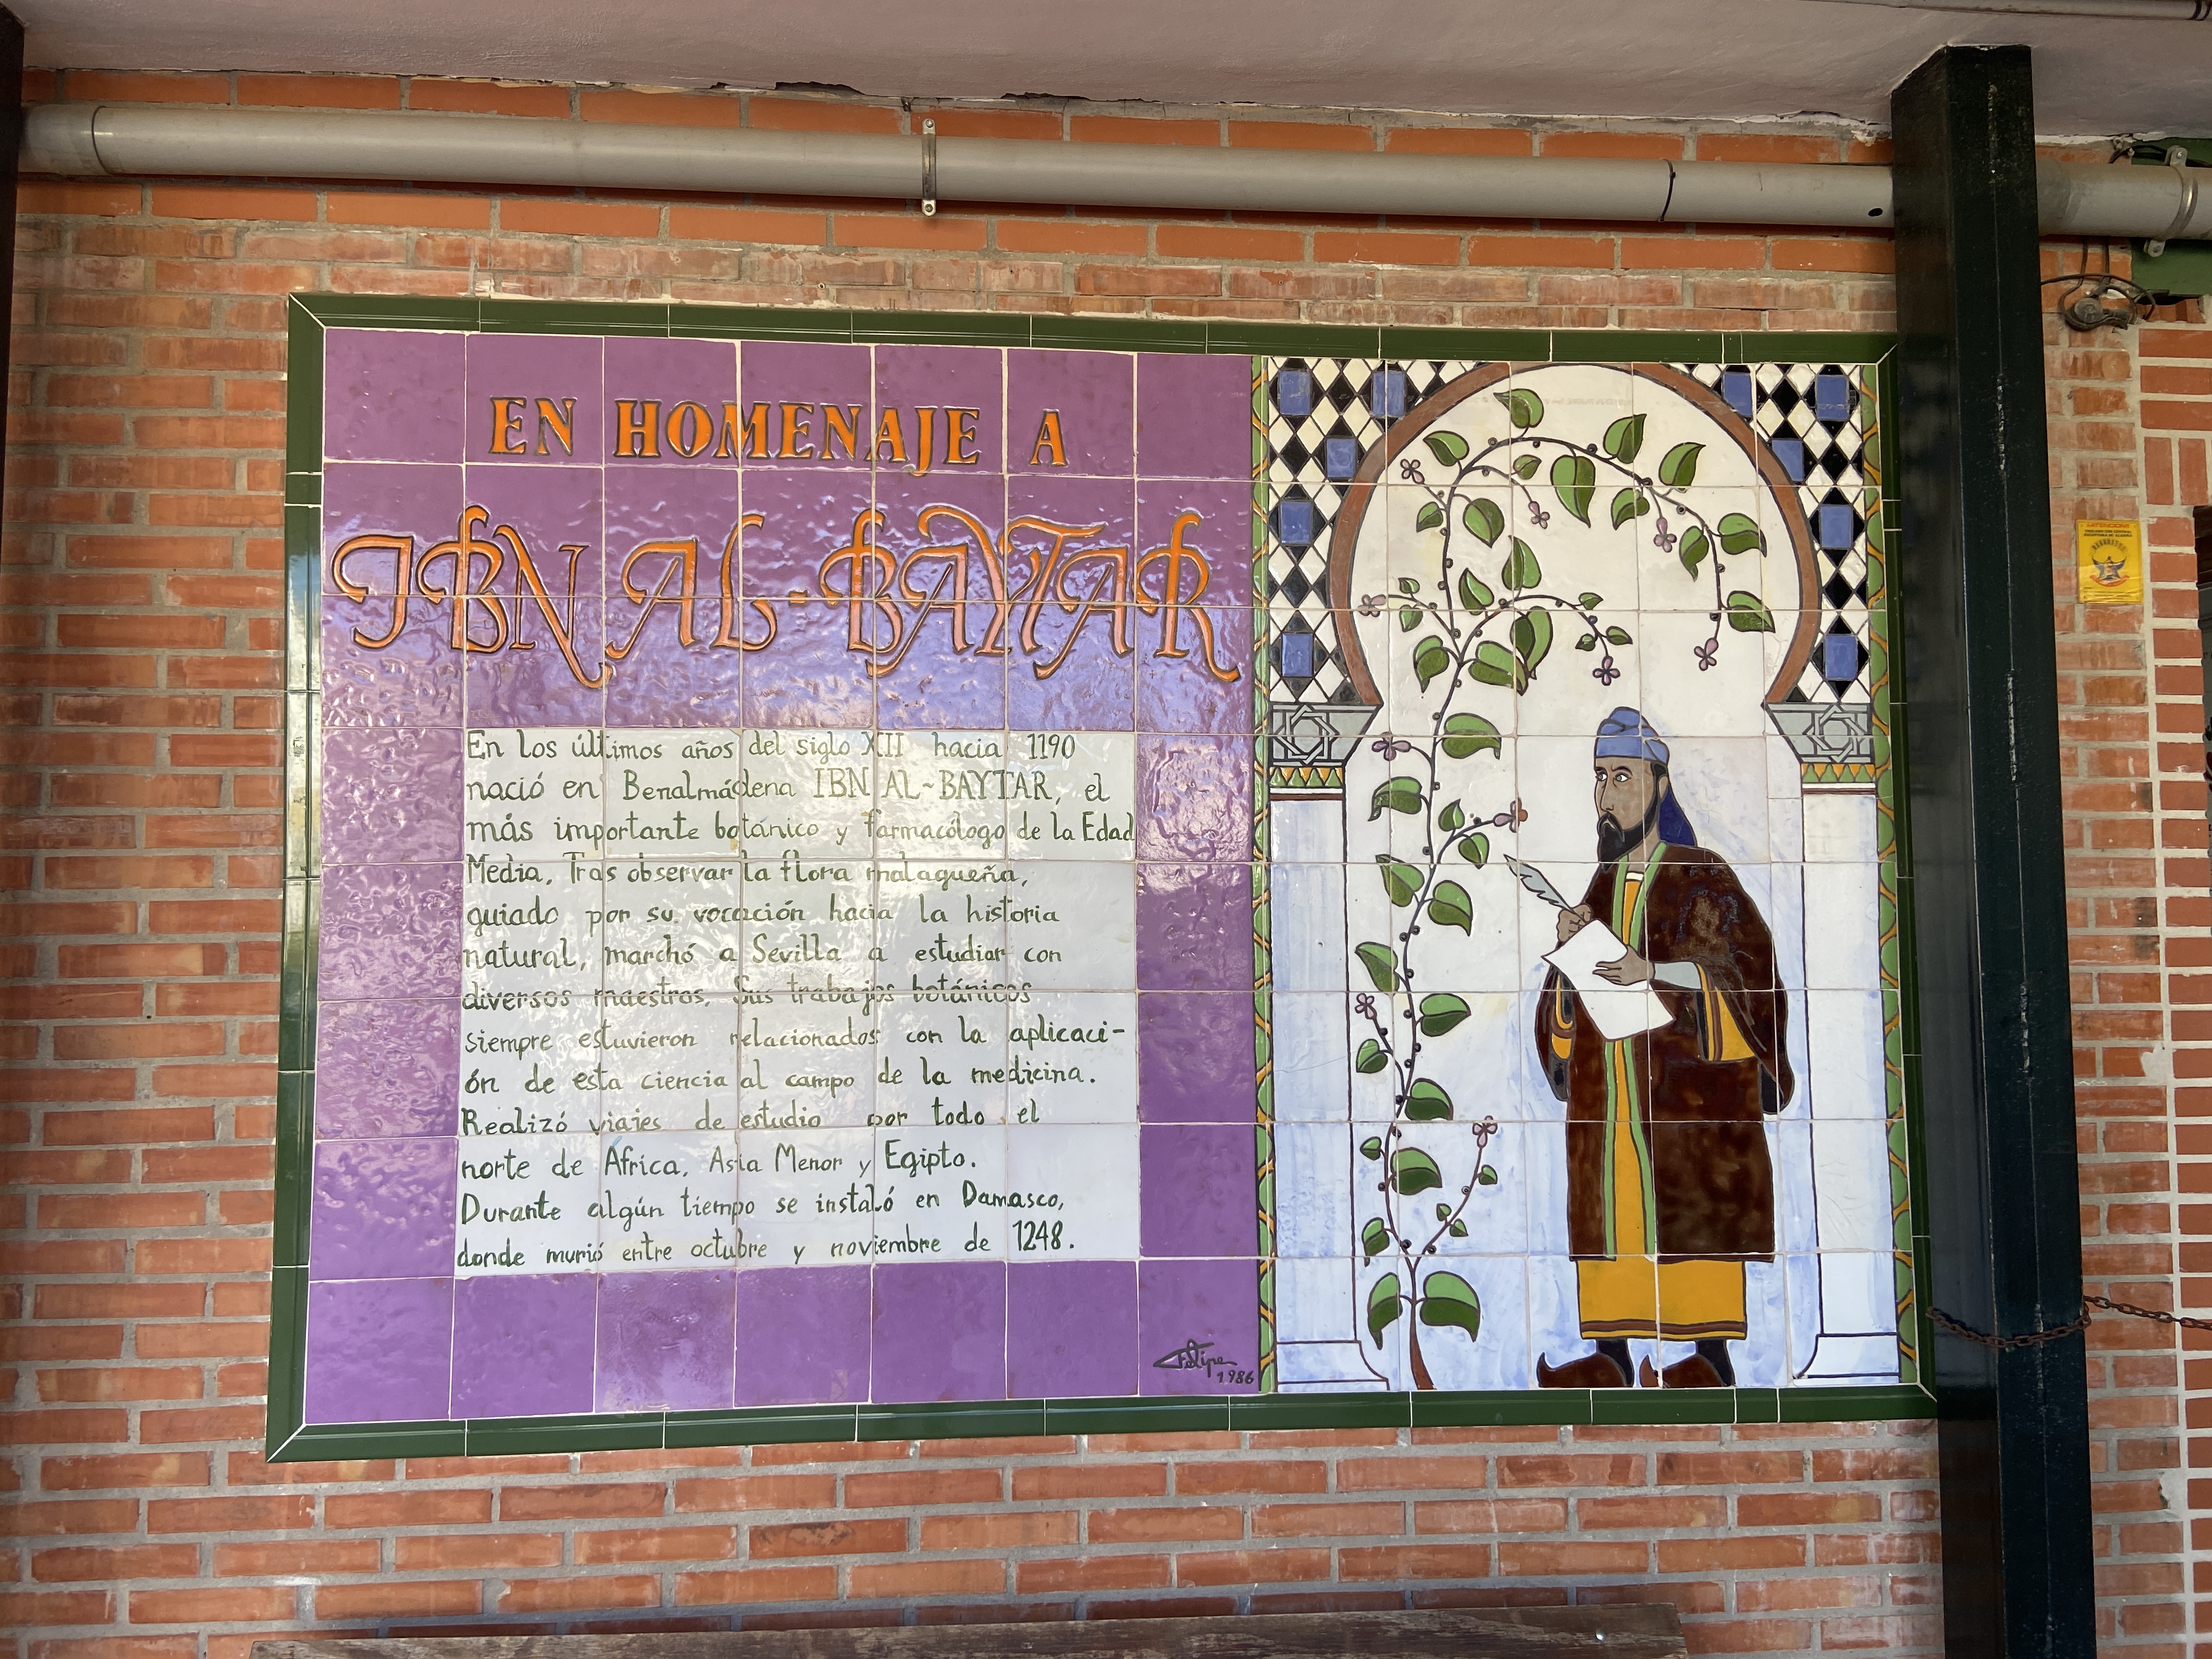 EN HOMENAJE A
IBN AL-BAYTAR
En los últimos años del siglo XII hacia 1190
nació en Benalmádena IBN AL-BAYTAR, el
más importante botánico y farmacólogo de la Edad
Media. Tras observar la flora malagueña,
guiado por su vocación hacia la historia
natural, marchó a Sevilla a estudiar con
diversos maestros. Sus trabajos botánicos
siempre estuvieron relacionados con la aplicaci-
ón de esta ciencia al campo de la medicina.
Realizó viajes de estudio por todo el
norte de África, Asia Menor y Egipto.
Durante algún tiempo se instaló en Damasco,
donde murió entre octubre y noviembre de 1248.
Felipe
1986